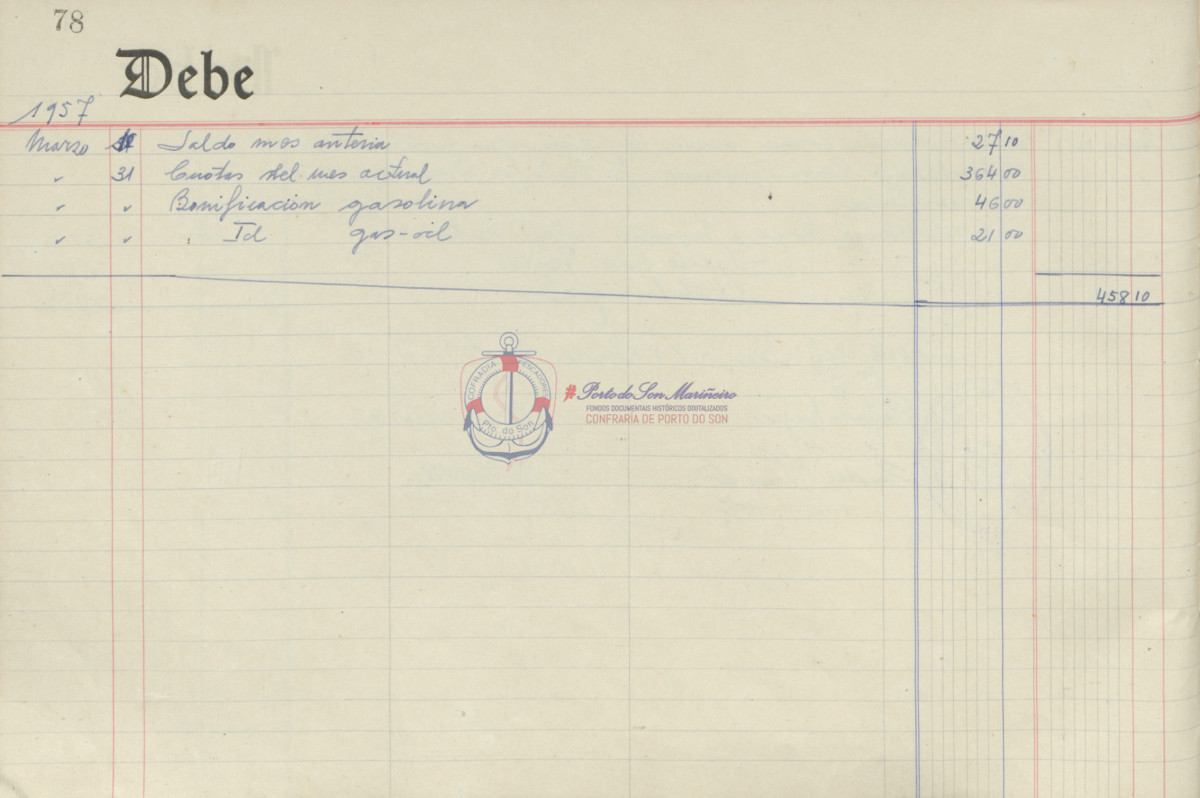 78
Debe
1957
Marzo Saldo mes anterior 27 10
" 31 Cuotas del mes actual 364 00
" " Bonificación gasolina 46 00
" " Id gas-oil 21 00
458 10
COFRADIA PESCADORES
Pto. do Son
# Porto do Son Mariñeiro
FONDOS DOCUMENTAIS HISTÓRICOS DIXITALIZADOS
CONFRARÍA DE PORTO DO SON